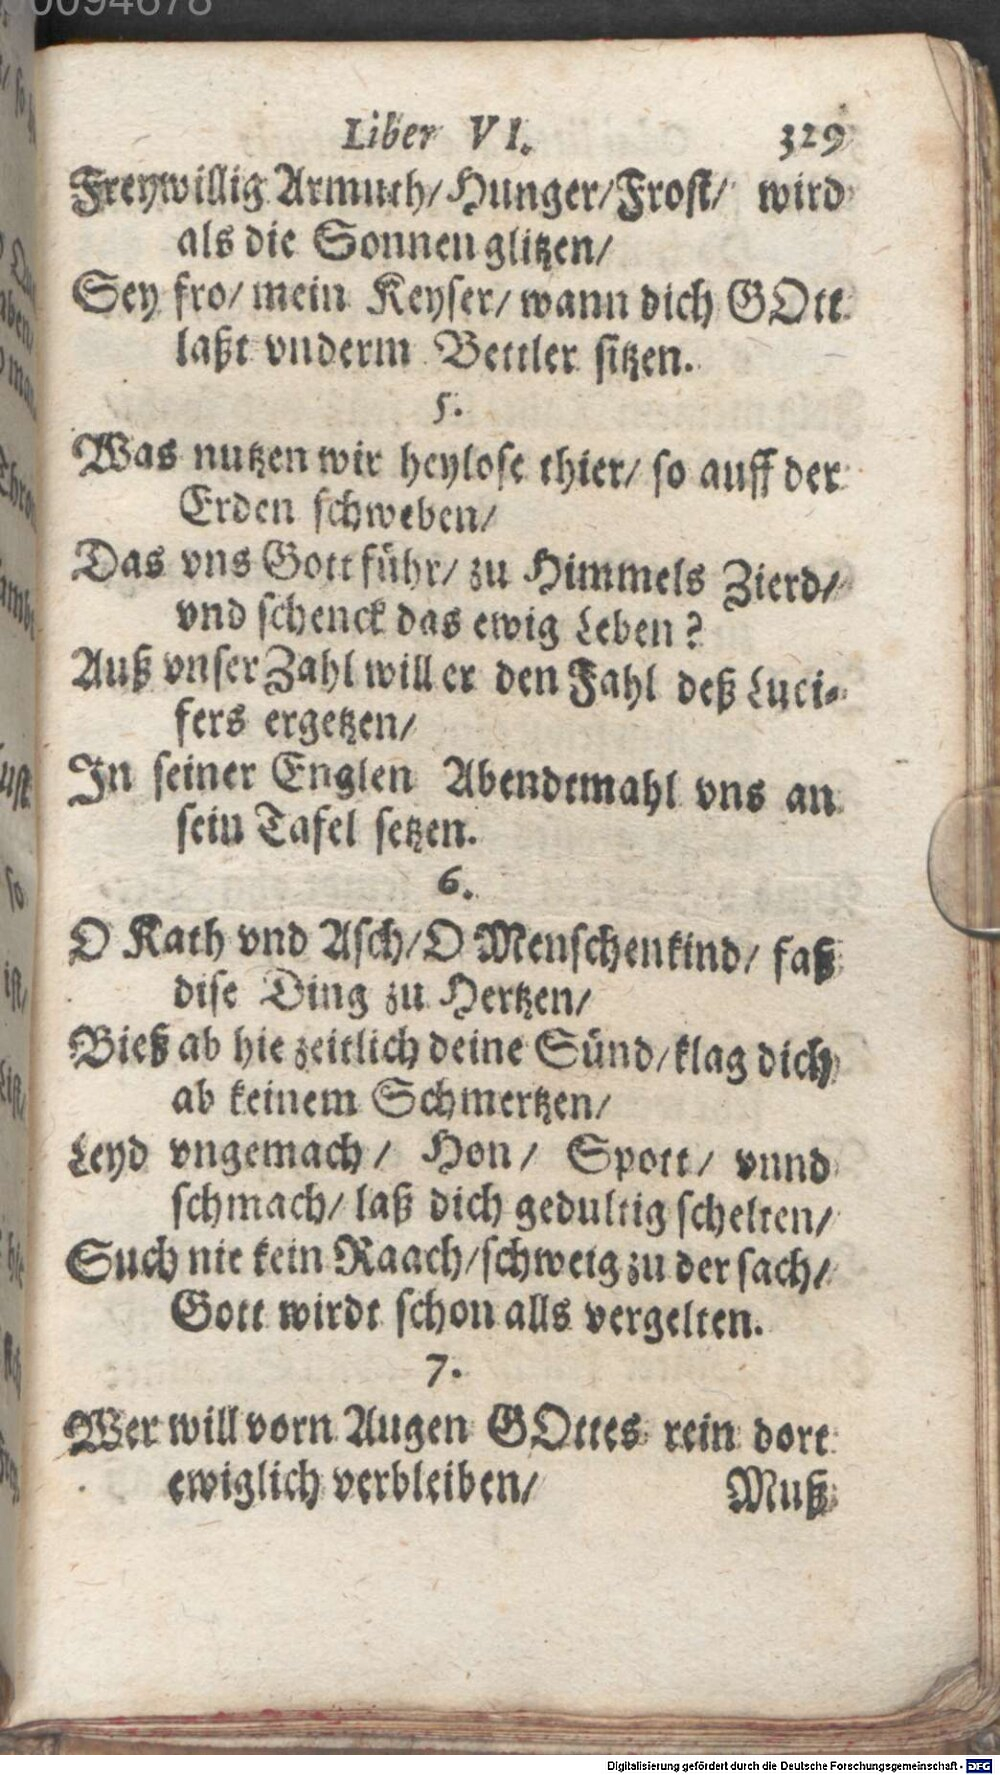 0094678
Liber VI. 329
Freywillig Armuth/ Hunger/ Frost/ wird
als die Sonnen glitzen/
Sey fro/ mein Keyser/ wann dich GOtt
laßt vnderm Bettler sitzen.
5.
Was nutzen wir heylose thier/ so auff der
Erden schweben/
Das vns Gott führ/ zu Himmels Zierd/
vnd schenck das ewig Leben?
Auß vnser Zahl will er den Fahl deß Luci-
fers ergetzen/
In seiner Englen Abendtmahl vns an
sein Tafel setzen.
6.
O Kath vnd Asch/ O Menschenkind/ faß
dise Ding zu Hertzen/
Bieß ab hie zeitlich deine Sünd/ klag dich
ab keinem Schmertzen/
Leyd vngemach/ Hon/ Spott/ vnnd
schmach/ laß dich gedultig schelten/
Such nit kein Raach/ schweig zu der sach/
Gott wirdt schon alls vergelten.
7.
Wer will vorn Augen GOttes rein dort
ewiglich verbleiben/
Muß
Digitalisierung gefördert durch die Deutsche Forschungsgemeinschaft - DFG